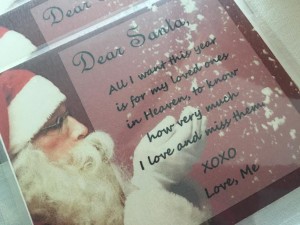 Dear Santa,
Dear Santa,
All I want this year
is for my loved ones
in Heaven, to know
how very much
I love and miss them.
XOXO
Love, Me